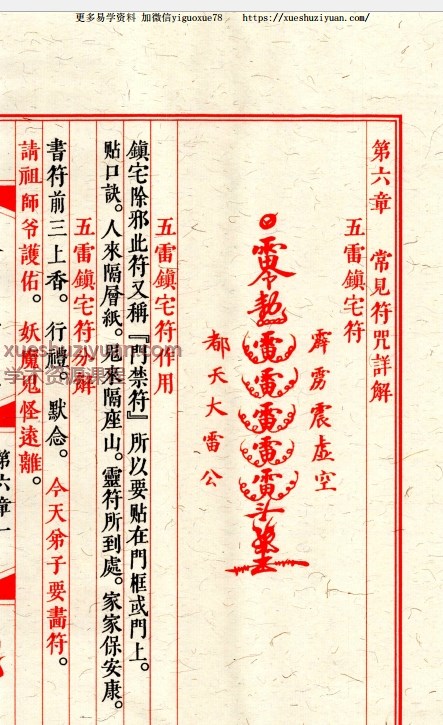 更多易学资料 加微信yiguoxue78 https://xueshuziyuan.com/
第六章 常見符咒詳解
五雷鎮宅符
霹靂震虛空
雷
雷
雷
雷
雷
都天大雷公
五雷鎮宅符作用
鎮宅除邪此符又稱『門禁符』所以要貼在門框或門上。
貼口訣。人來隔層紙。鬼來隔座山。靈符所到處。家家保安康。
五雷鎮宅符分解
書符前三上香。行禮。默念。今天弟子要畫符。
請祖師爺護佑。妖魔鬼怪遠離。
第六章
xueshuziyuan.com